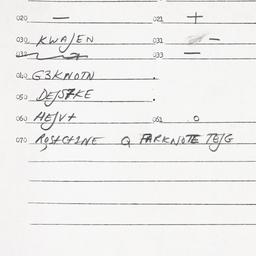 020 — 021 +
030 KWAJEN 031 –
032 033 —
040 G3KNOTN .
050 DEJSZKE .
060 AEJV+ 061 o
070 Q FARKNOTE TEJG